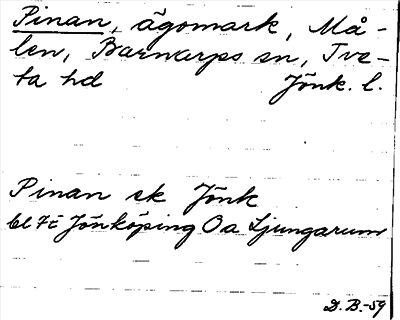 Pinan, ägomark, Må-
len, Barnarps sn, Tve-
ta hd Jönk. l.
Pinan sk Jönk
bl 7E Jönköping Oa Ljungarum
D. B.-59